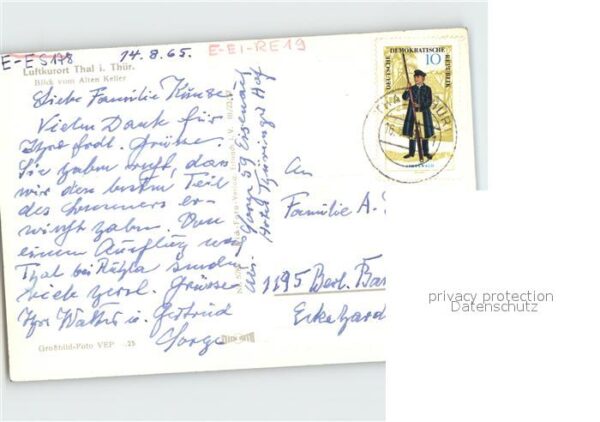 E-ES178
14.8.65.
E-EI-RE19
Luftkurort Thal i. Thür.
Blick vom Alten Keller
Liebe Familie Kunse
Vielen Dank für
Ihre frdl. Grüsse.
Sie haben recht, dass
wir den besten Teil
des Sommers er-
wischt haben. Von
einem Ausflug nach
Thal bei Ruhla senden
herzl. Grüsse
Ihre Walter u. Gertrud
Sorge
Großbild-Foto VEP 25
Abs. Sorge 59 Eisenach
Hotel Thüringer Hof
DEUTSCHE DEMOKRATISCHE REPUBLIK
10
An
Familie A.
1195 Berl. Ba
privacy protection
Datenschutz